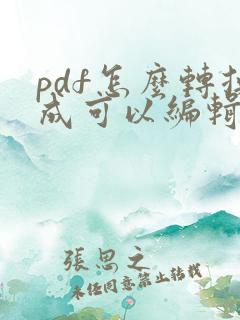 pdf怎麼轉換
成可以編輯
張思之
未經同意禁止轉載